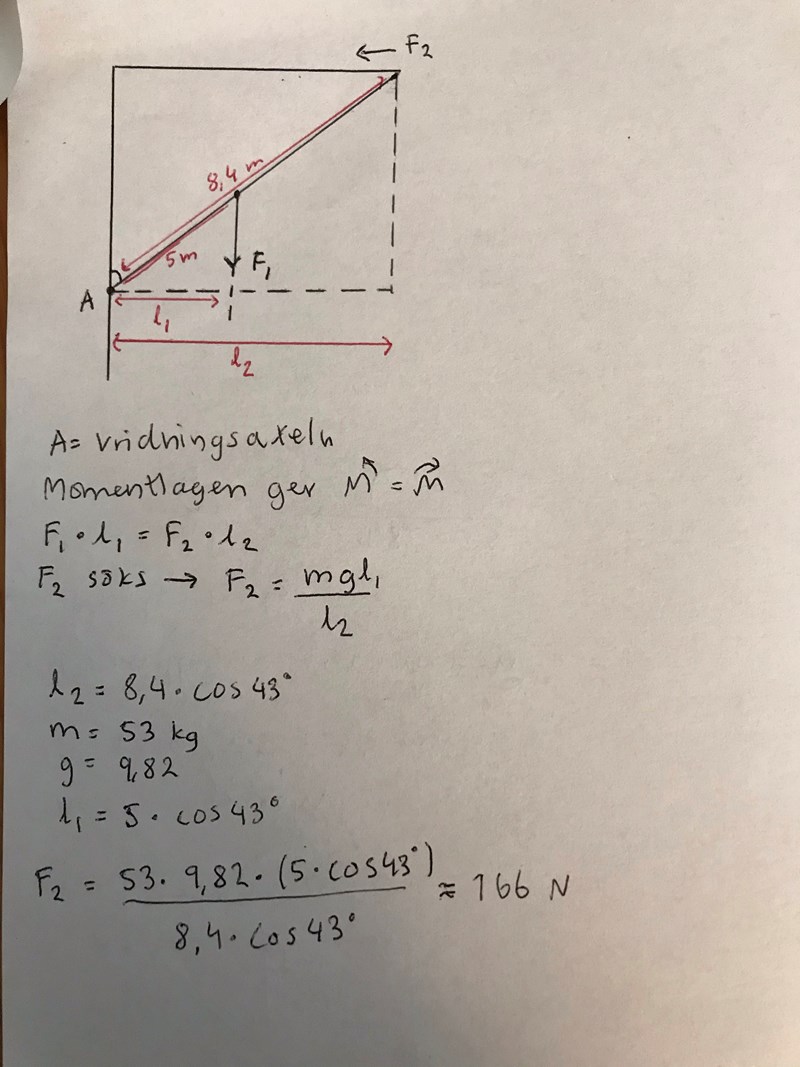 ← F2
8,4 m
5m
F1
A
l1
l2
A= vridningsaxeln
Momentlagen ger M = M
F1 • l1 = F2 • l2
F2 söks → F2 = mgl1 / l2
l2 = 8,4 • cos 43°
m = 53 kg
g = 9,82
l1 = 5 • cos 43°
F2 = 53 • 9,82 • (5 • cos43°) / 8,4 • cos 43° ≈ 166 N